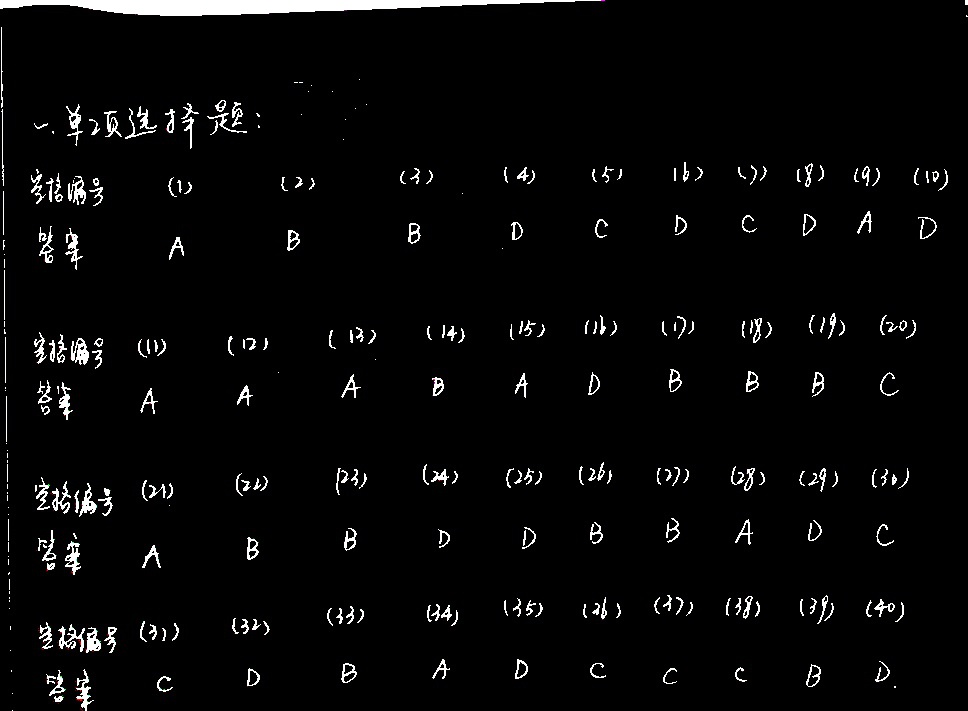 一.单项选择题:
空格编号 (1) (2) (3) (4) (5) (6) (7) (8) (9) (10)
答案 A B B D C D C D A D
空格编号 (11) (12) (13) (14) (15) (16) (17) (18) (19) (20)
答案 A A A B A D B B B C
空格编号 (21) (22) (23) (24) (25) (26) (27) (28) (29) (30)
答案 A B B D D B B A D C
空格编号 (31) (32) (33) (34) (35) (36) (37) (38) (39) (40)
答案 C D B A D C C C B D.